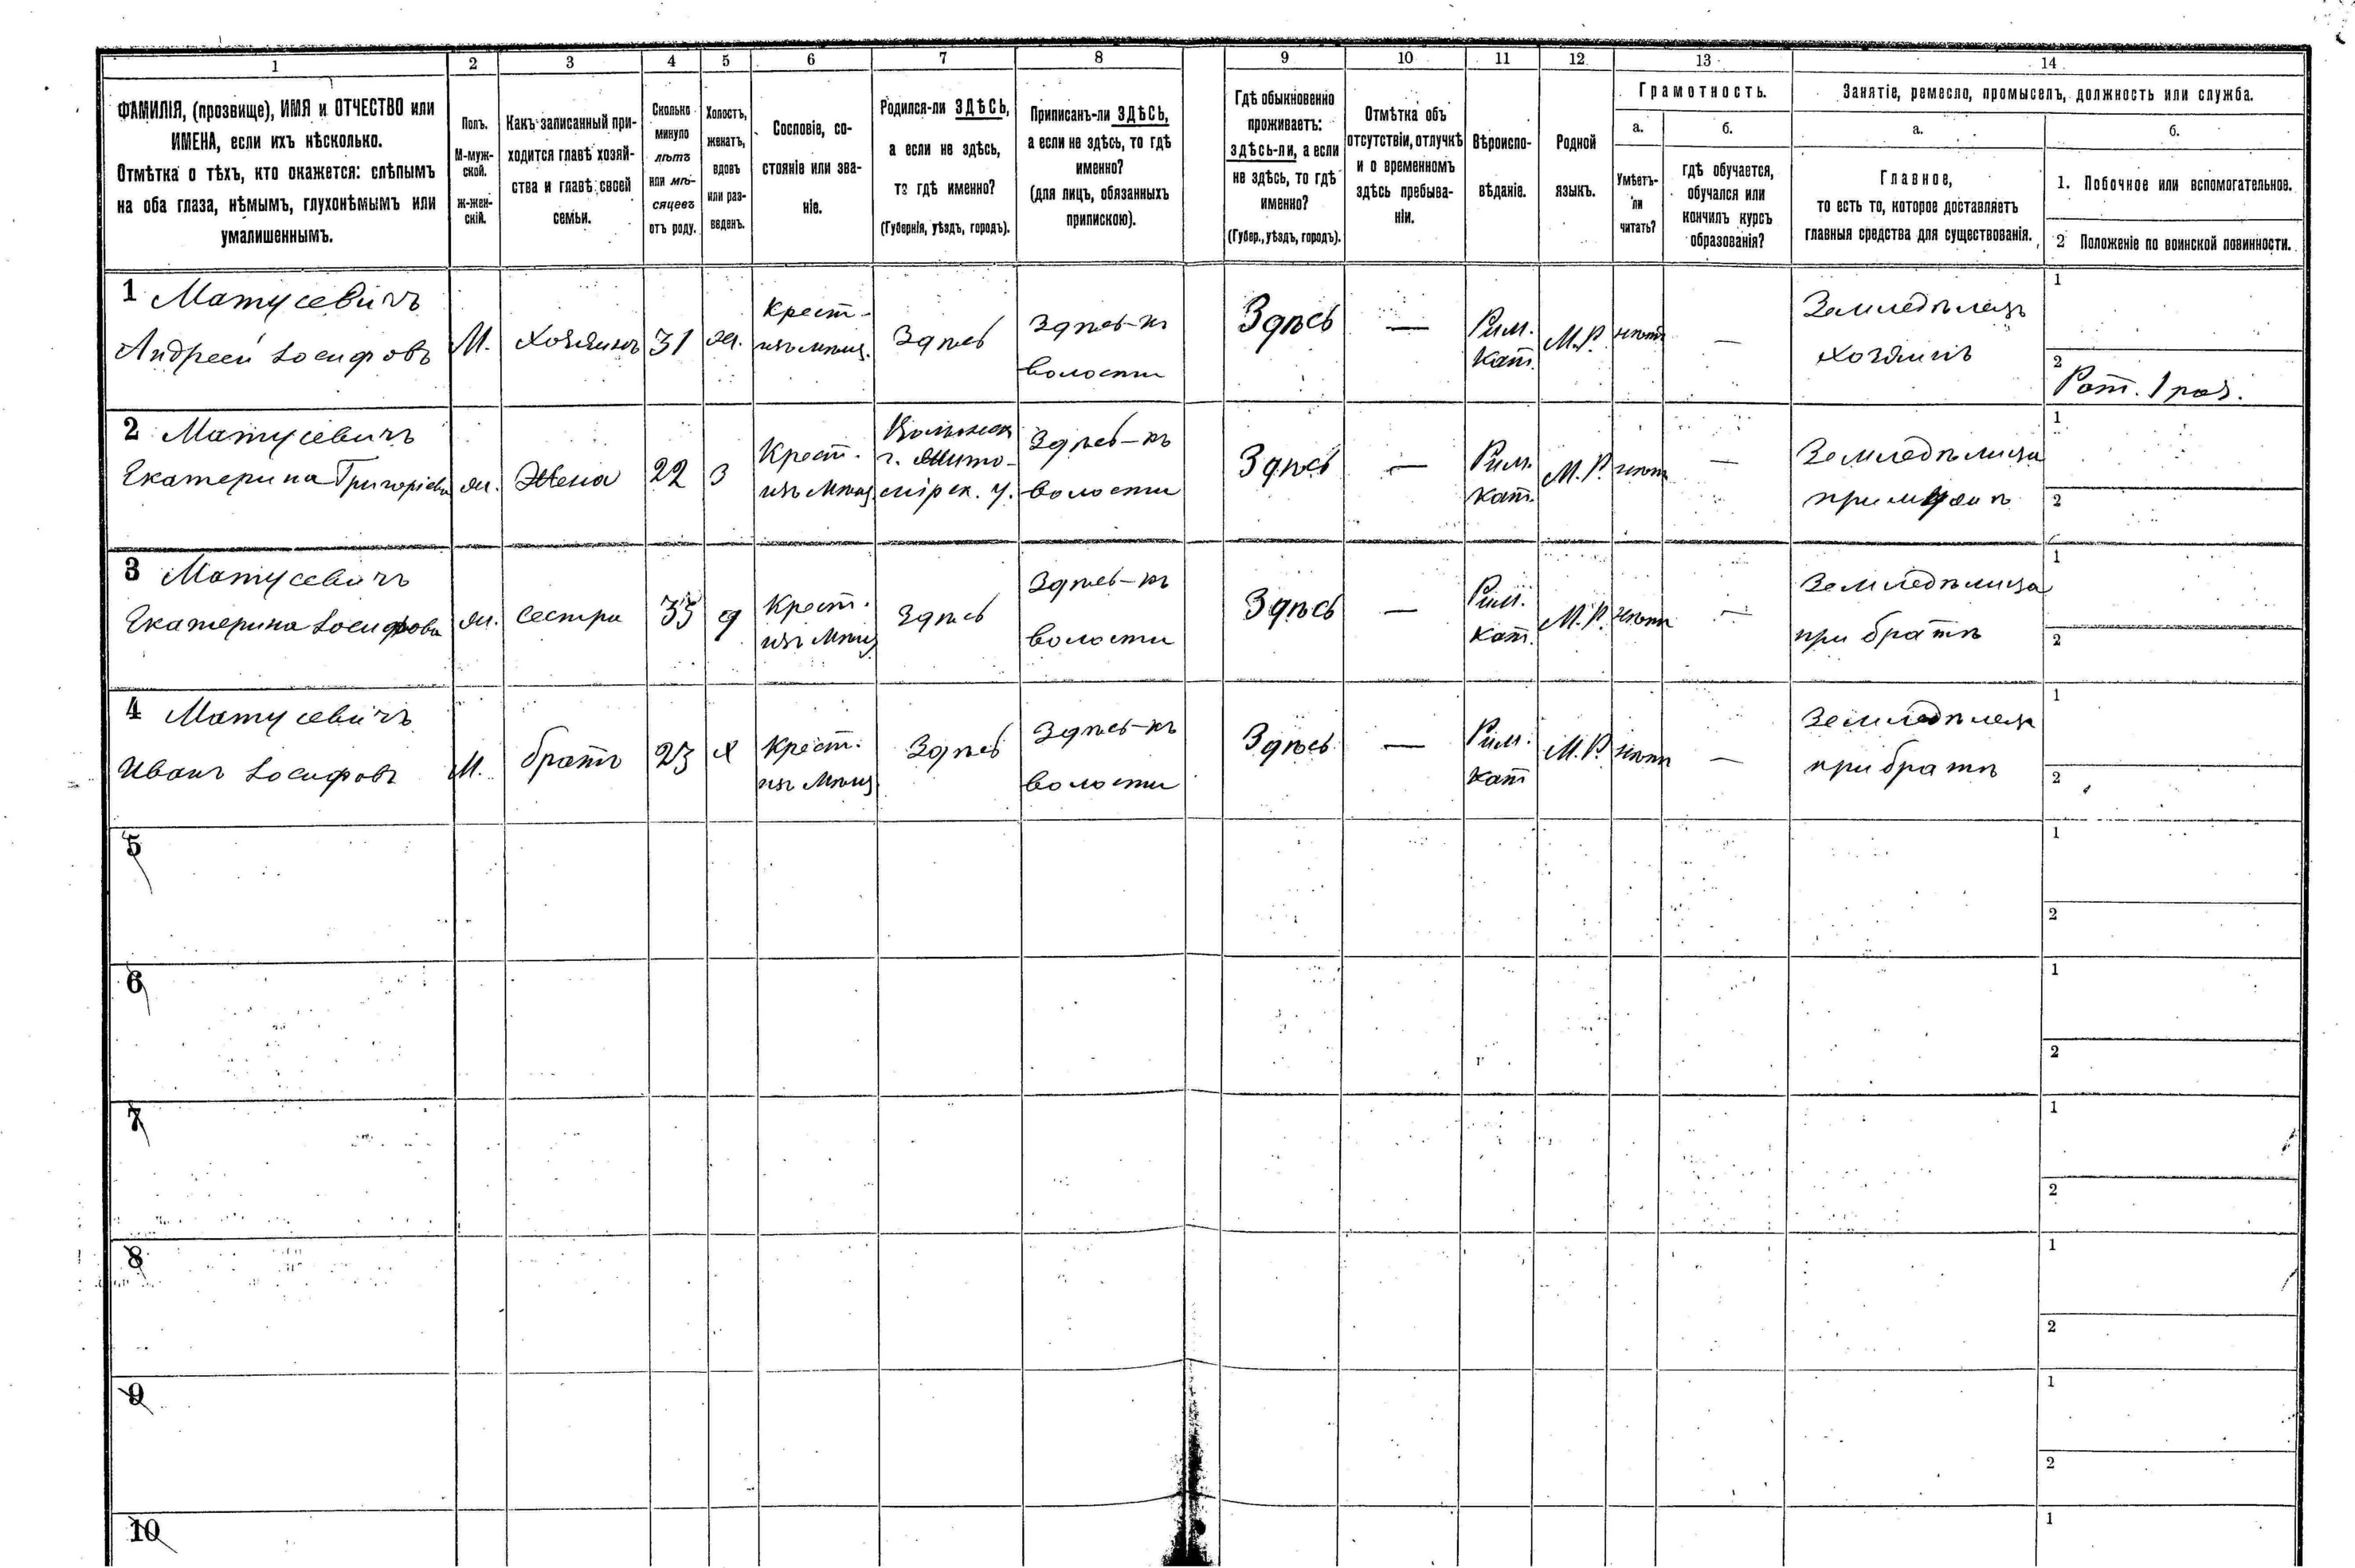 1 2 3 4 5 6 7 8 9 10 11 12 13 14
ФАМИЛІЯ, (прозвище), ИМЯ и ОТЧЕСТВО или
ИМЕНА, если ихъ нѣсколько.
Отмѣтка о тѣхъ, кто окажется: слѣпымъ
на оба глаза, нѣмымъ, глухонѣмымъ или
умалишеннымъ.
Полъ.
М-муж-
ской.
ж-жен-
скій.
Какъ записанный при-
ходится главѣ хозяй-
ства и главѣ своей
семьи.
Сколько
минуло
лѣтъ
или мѣ-
сяцевъ
отъ роду.
Холостъ,
женатъ,
вдовъ
или раз-
веденъ.
Сословіе, со-
стояніе или зва-
ніе.
Родился-ли ЗДѢСЬ,
а если не здѣсь,
то гдѣ именно?
(Губернія, уѣздъ, городъ).
Приписанъ-ли ЗДѢСЬ,
а если не здѣсь, то гдѣ
именно?
(для лицъ, обязанныхъ
припискою).
Гдѣ обыкновенно
проживаетъ:
здѣсь-ли, а если
не здѣсь, то гдѣ
именно?
(Губер., уѣздъ, городъ).
Отмѣтка объ
отсутствіи, отлучкѣ
и о временномъ
здѣсь пребыва-
ніи.
Вѣроиспо-
вѣданіе.
Родной
языкъ.
Грамотность.
а.
Умѣетъ-
ли
читать?
б.
гдѣ обучается,
обучался или
кончилъ курсъ
образованія?
Занятіе, ремесло, промыселъ, должность или служба.
а.
Главное,
то есть то, которое доставляетъ
главныя средства для существованія.
б.
1. Побочное или вспомогательное.
2 Положеніе по воинской повинности.
1 Матусевичъ
Андрей Іосифовъ
М.
хозяинъ
31
ж.
Крест.
изъ мѣщ.
Здѣсь
Здѣсь-къ
волости
Здѣсь
—
Рим.
Кат.
М.Р.
нѣтъ
—
Земледѣлецъ
хозяинъ
1
2
Рат. 1 раз.
2 Матусевичъ
Екатерина Григоріева
ж.
Жена
22
З
Крест.
изъ мѣщ
Волынск
г. Жито-
мірск. у.
Здѣсь-къ
волости
Здѣсь
—
Рим.
Кат.
М.Р.
нѣтъ
—
Земледѣлица
при мужѣ
1
2
3 Матусевичъ
Екатерина Іосифова
ж.
сестра
35
д
Крест.
изъ мѣщ
Здѣсь
Здѣсь-къ
волости
Здѣсь
—
Рим.
Кат.
М.Р.
нѣтъ
—
Земледѣлица
при братѣ
1
2
4 Матусевичъ
Иванъ Іосифовъ
М.
братъ
23
х
Крест.
изъ мѣщ
Здѣсь
Здѣсь-къ
волости
Здѣсь
—
Рим.
Кат
М.Р.
нѣтъ
—
Земледѣлецъ
при братѣ
1
2
5
1
2
6
1
2
7
1
2
8
1
2
9
1
2
10
1